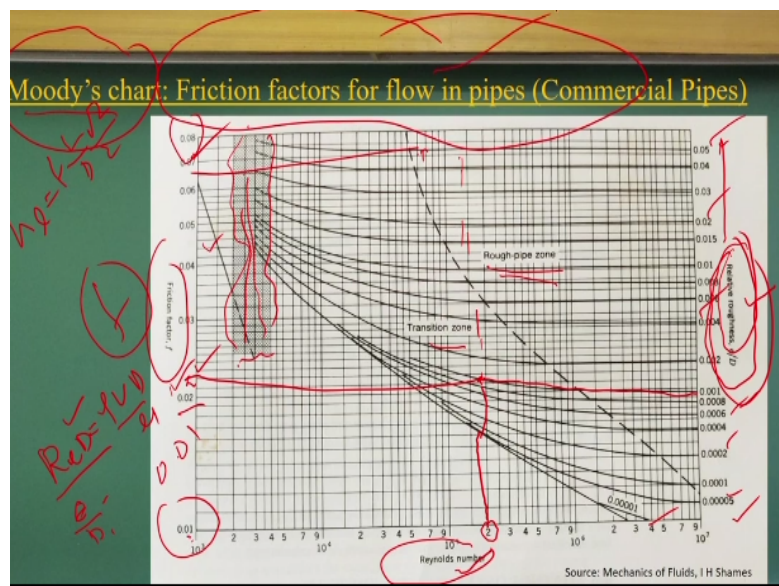 Moody's chart: Friction factors for flow in pipes (Commercial Pipes)
0.08
0.07
0.06
0.05
0.04
0.03
0.02
0.01
Friction factor, f
Rough-pipe zone
Transition zone
0.05
0.04
0.03
0.02
0.015
0.01
0.008
0.004
0.002
0.001
0.0008
0.0006
0.0004
0.0002
0.0001
0.00005
0.00001
Relative roughness, e/D
10³ 2 3 4 5 7 9 10⁴ 2 3 4 5 7 9 10⁵ 2 3 4 5 7 9 10⁶ 2 3 4 5 7 9 10⁷
Reynolds number
f
e/D
Source: Mechanics of Fluids, I H Shames